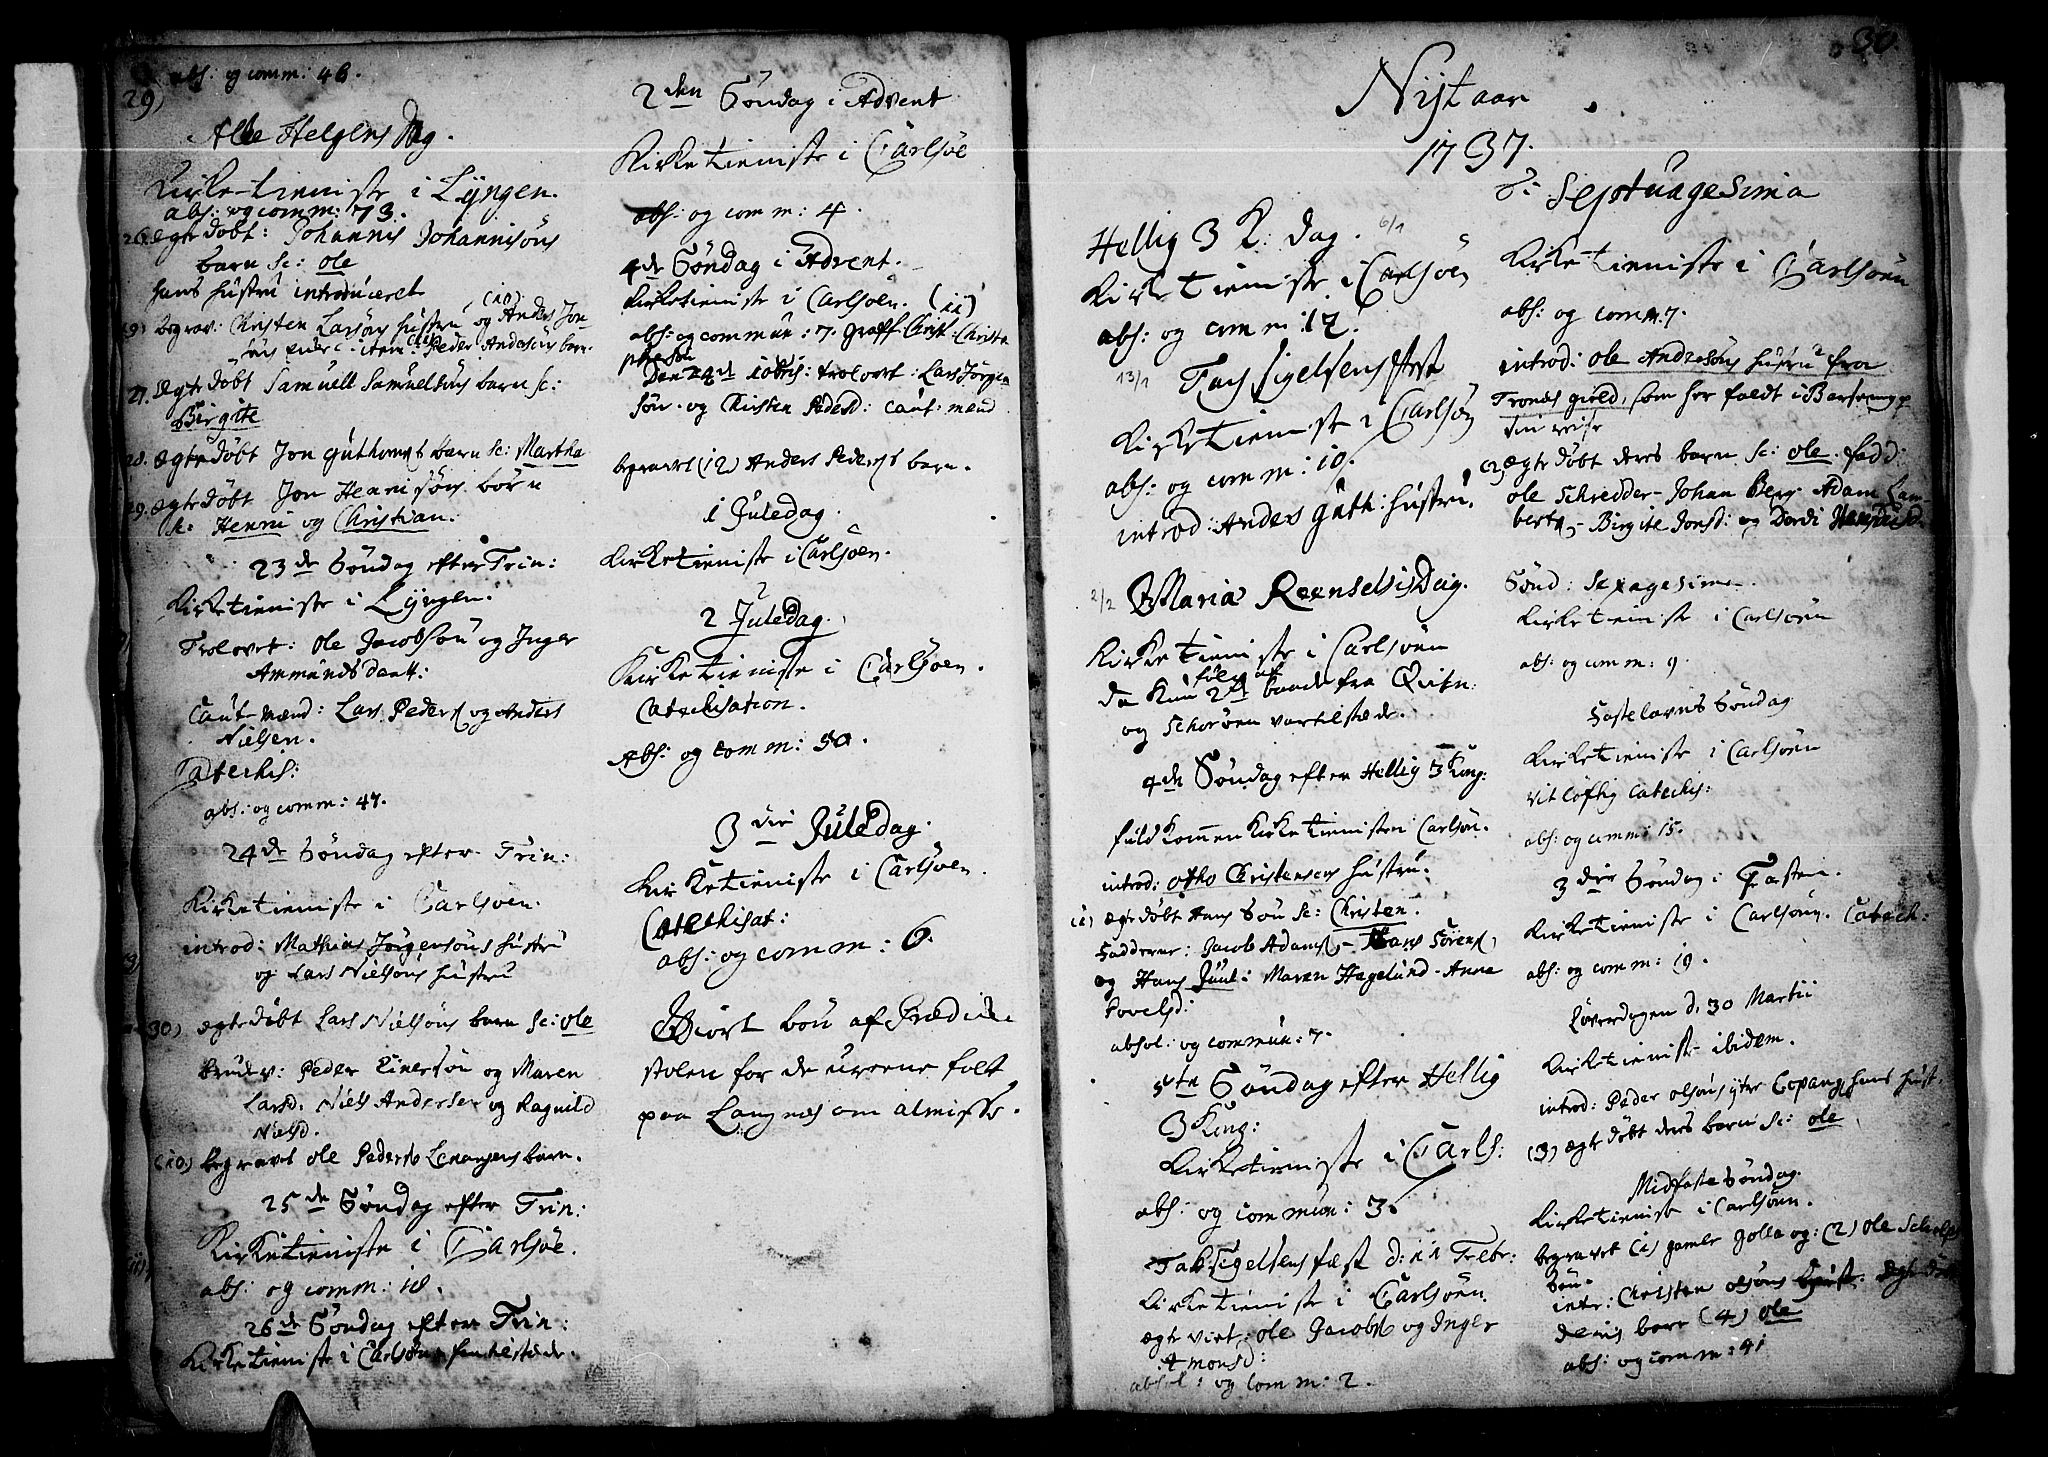 abs: og comm: 46.
29)
Alle Helgens Dag.
Kirke-tieniste i Lyngen.
abs: og comm: 73.
26. ægte døbt: Johannis Johannisøns
barn sc: ole
hans hustru introduceret
(10)
9) begrav: Christen Larsøns hustru og Anders Jon-
søns item: Peder Andersøns barn.
27. ægte døbt Samuell Samuelsøns barn sc:
Birgite
28. ægte døbt Jon Guthorms barn sc: Martha
29. ægte døbt Jon Henrisøns børn
sc: Henri og Christian.
23de Søndag efter Trin:
Kirketieniste i Lyngen.
Trolovet: Ole Jacobsøn og Inger
Ammunds daatt:
Caut-mænd: Lars Peders og Anders
Nielsen.
Catechis:
abs: og comm: 47.
24de Søndag efter Trin:
Kirketieniste i Carlsøen.
introd: Mathias Jørgensøns hustru
og Lars Nielsøns hustru
30) ægte døbt Lars Nielsøns barn sc: ole
Peder Einersøn og Maren
Larsd. Niels Andersen og Ragnild
Nielsd.
(10) begravet ole Peders barn.
25de Søndag efter Trin:
Kirketieniste i Carlsøe.
abs: og comm: 10.
26de Søndag efter Trin:
Kirketieniste i Carlsøen
2den Søndag i Advent
Kirketieniste i Carlsøe
abs: og comm: 4.
4de Søndag i Advent.
Kirketieniste i Carlsøen. (11)
abs: og commun: 7. Christ: Christo
phersøn
Den 24de 10bris: trolovet: Lars Jørgen
søn og Christen Pedersd: caut: mend
begravet (12) Anders Peders barn.
1 Juledag.
Kirketieniste i Carlsøen.
2 Juledag.
Kirketieniste i Carlsøen.
Catechisation.
Abs: og comm: 50.
3die Juledag.
Kirketieniste i Carlsøen.
Catechisat:
abs: og comm: 6.
Giort bøn af Prædicke
stolen for de folk
paa Langnæs om almisse.
30.
Nyt aar
1737.
Hellig 3 K: dag. 6/1
Kirketieniste i Carlsøen
abs: og comm: 12.
13/1
Kirketieniste i Carlsøn
abs: og comm: 10.
introd: Anders Guth: hustru.
2/2 Maria Reenselsis Dag.
Kirketieniste i Carlsøen
da kun 2de baade fra Qvitn:
og Schorøen var tilstæde.
4de Søndag efter Hellig 3 King:
fuldkommen Kirketieniste i Carlsøn.
introd: Otho Christensens hustru.
(1) ægte døbt hans Søn sc: Christen.
Fadderne: Jacob Adams, Hans Sørens,
og Hans Juul: Maren Hagelund - Anna
Povelsd:
absol: og commun: 7.
5te Søndag efter Hellig
3 King:
Kirketieniste i Carls:
abs: og commun: 3.
Taksigelsens fæst d: 11 Febr:
Kirketieniste i Carlsøen
ægte viet: ole Jacobs og Inger
Amonsd:
absol: og comm: 2.
S: Septuagesima
Kirke-tieniste i Carlsøen
abs: og comm: 7.
introd: ole Andresøns hustru fra
Tronds gield, som her faldt i Barselng paa
sin reise
(2) ægte døbt deres barn sc: ole. fadd:
ole Schredder - Johan Berg. Adam Lam-
berts, - Birgite Jonsd: og Dordi
Sønd: Sexagesima.
Kirketieniste i Carlsøen
abs: og comm: 9.
Fastelavns Søndag
Kirketieniste i Carlsøen
vitløftig catechis:
abs: og comm: 15.
3die Søndag i Fasten.
Kirketieniste i Carlsøen. Catech:
abs: og comm: 19.
Løverdagen d. 30 Martii
Kirketieniste ibidem.
introd: Peder olsøns hans hust.
(3) ægte døbt deres barn sc: ole
Midfaste Søndag.
Kirketieniste i Carlsøen.
begravet (1) gamle og: (2) ole
Søn.
intr: Christen olsøns hust. ægte døbt
deris barn (4) ole
abs: og comm: 41